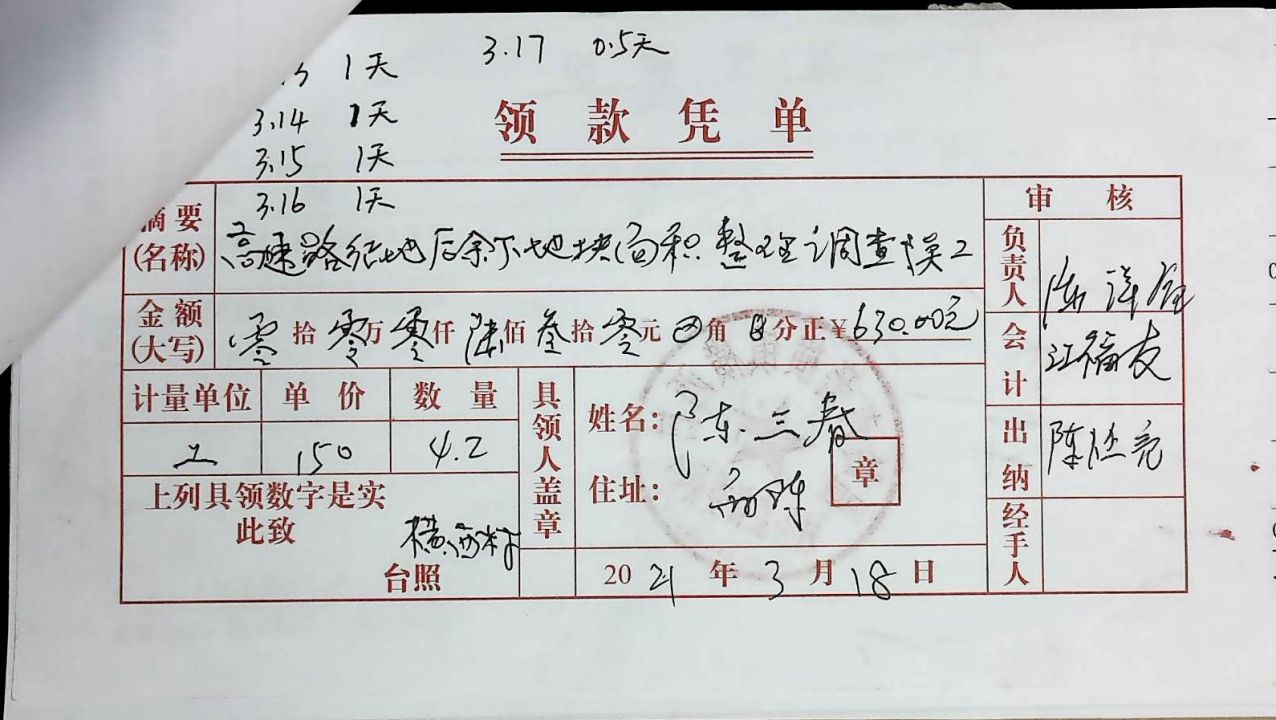 3 1天
3.17 0.5天
3.14 1天
领款凭单
3.15 1天
3.16 1天
摘要(名称) 高速路征地后余下地块面积整理调查误工
审核
负责人
金额(大写) 零拾零万零仟陆佰叁拾零元0角0分正¥630.00元
会计 江福友
计量单位 单价 数量
工 150 4.2
具领人盖章
姓名:陈三春
住址:前陈
章
出纳 陈丕亮
上列具领数字是实
此致
横西村
台照
2021年3月18日
经手人